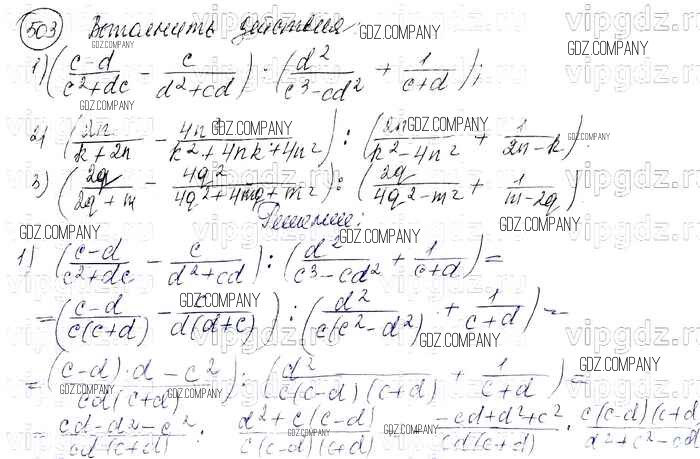 503 Выполнить действия:
1) ((c-d)/(c²+dc) - c/(d²+cd)) : (d²/(c³-cd²) + 1/(c+d));
2) (2n/(k+2n) - 4n²/(k²+4nk+4n²)) : (2n/(k²-4n²) + 1/(2n-k));
3) (2q/(2q+m) - 4q²/(4q²+4mq+m²)) : (2q/(4q²-m²) + 1/(m-2q))
Решение:
1) ((c-d)/(c²+dc) - c/(d²+cd)) : (d²/(c³-cd²) + 1/(c+d)) =
= ((c-d)/(c(c+d)) - c/(d(d+c))) : (d²/(c(c²-d²)) + 1/(c+d)) =
= ((c-d)·d - c²)/(cd(c+d)) : (d²/(c(c-d)(c+d)) + 1/(c+d)) =
= (cd-d²-c²)/(cd(c+d)) : (d²+c(c-d))/(c(c-d)(c+d)) = -(cd+d²+c²)/(cd(c+d)) · (c(c-d)(c+d)/(d²+c²-cd)
GDZ.COMPANY
vipgdz.ru